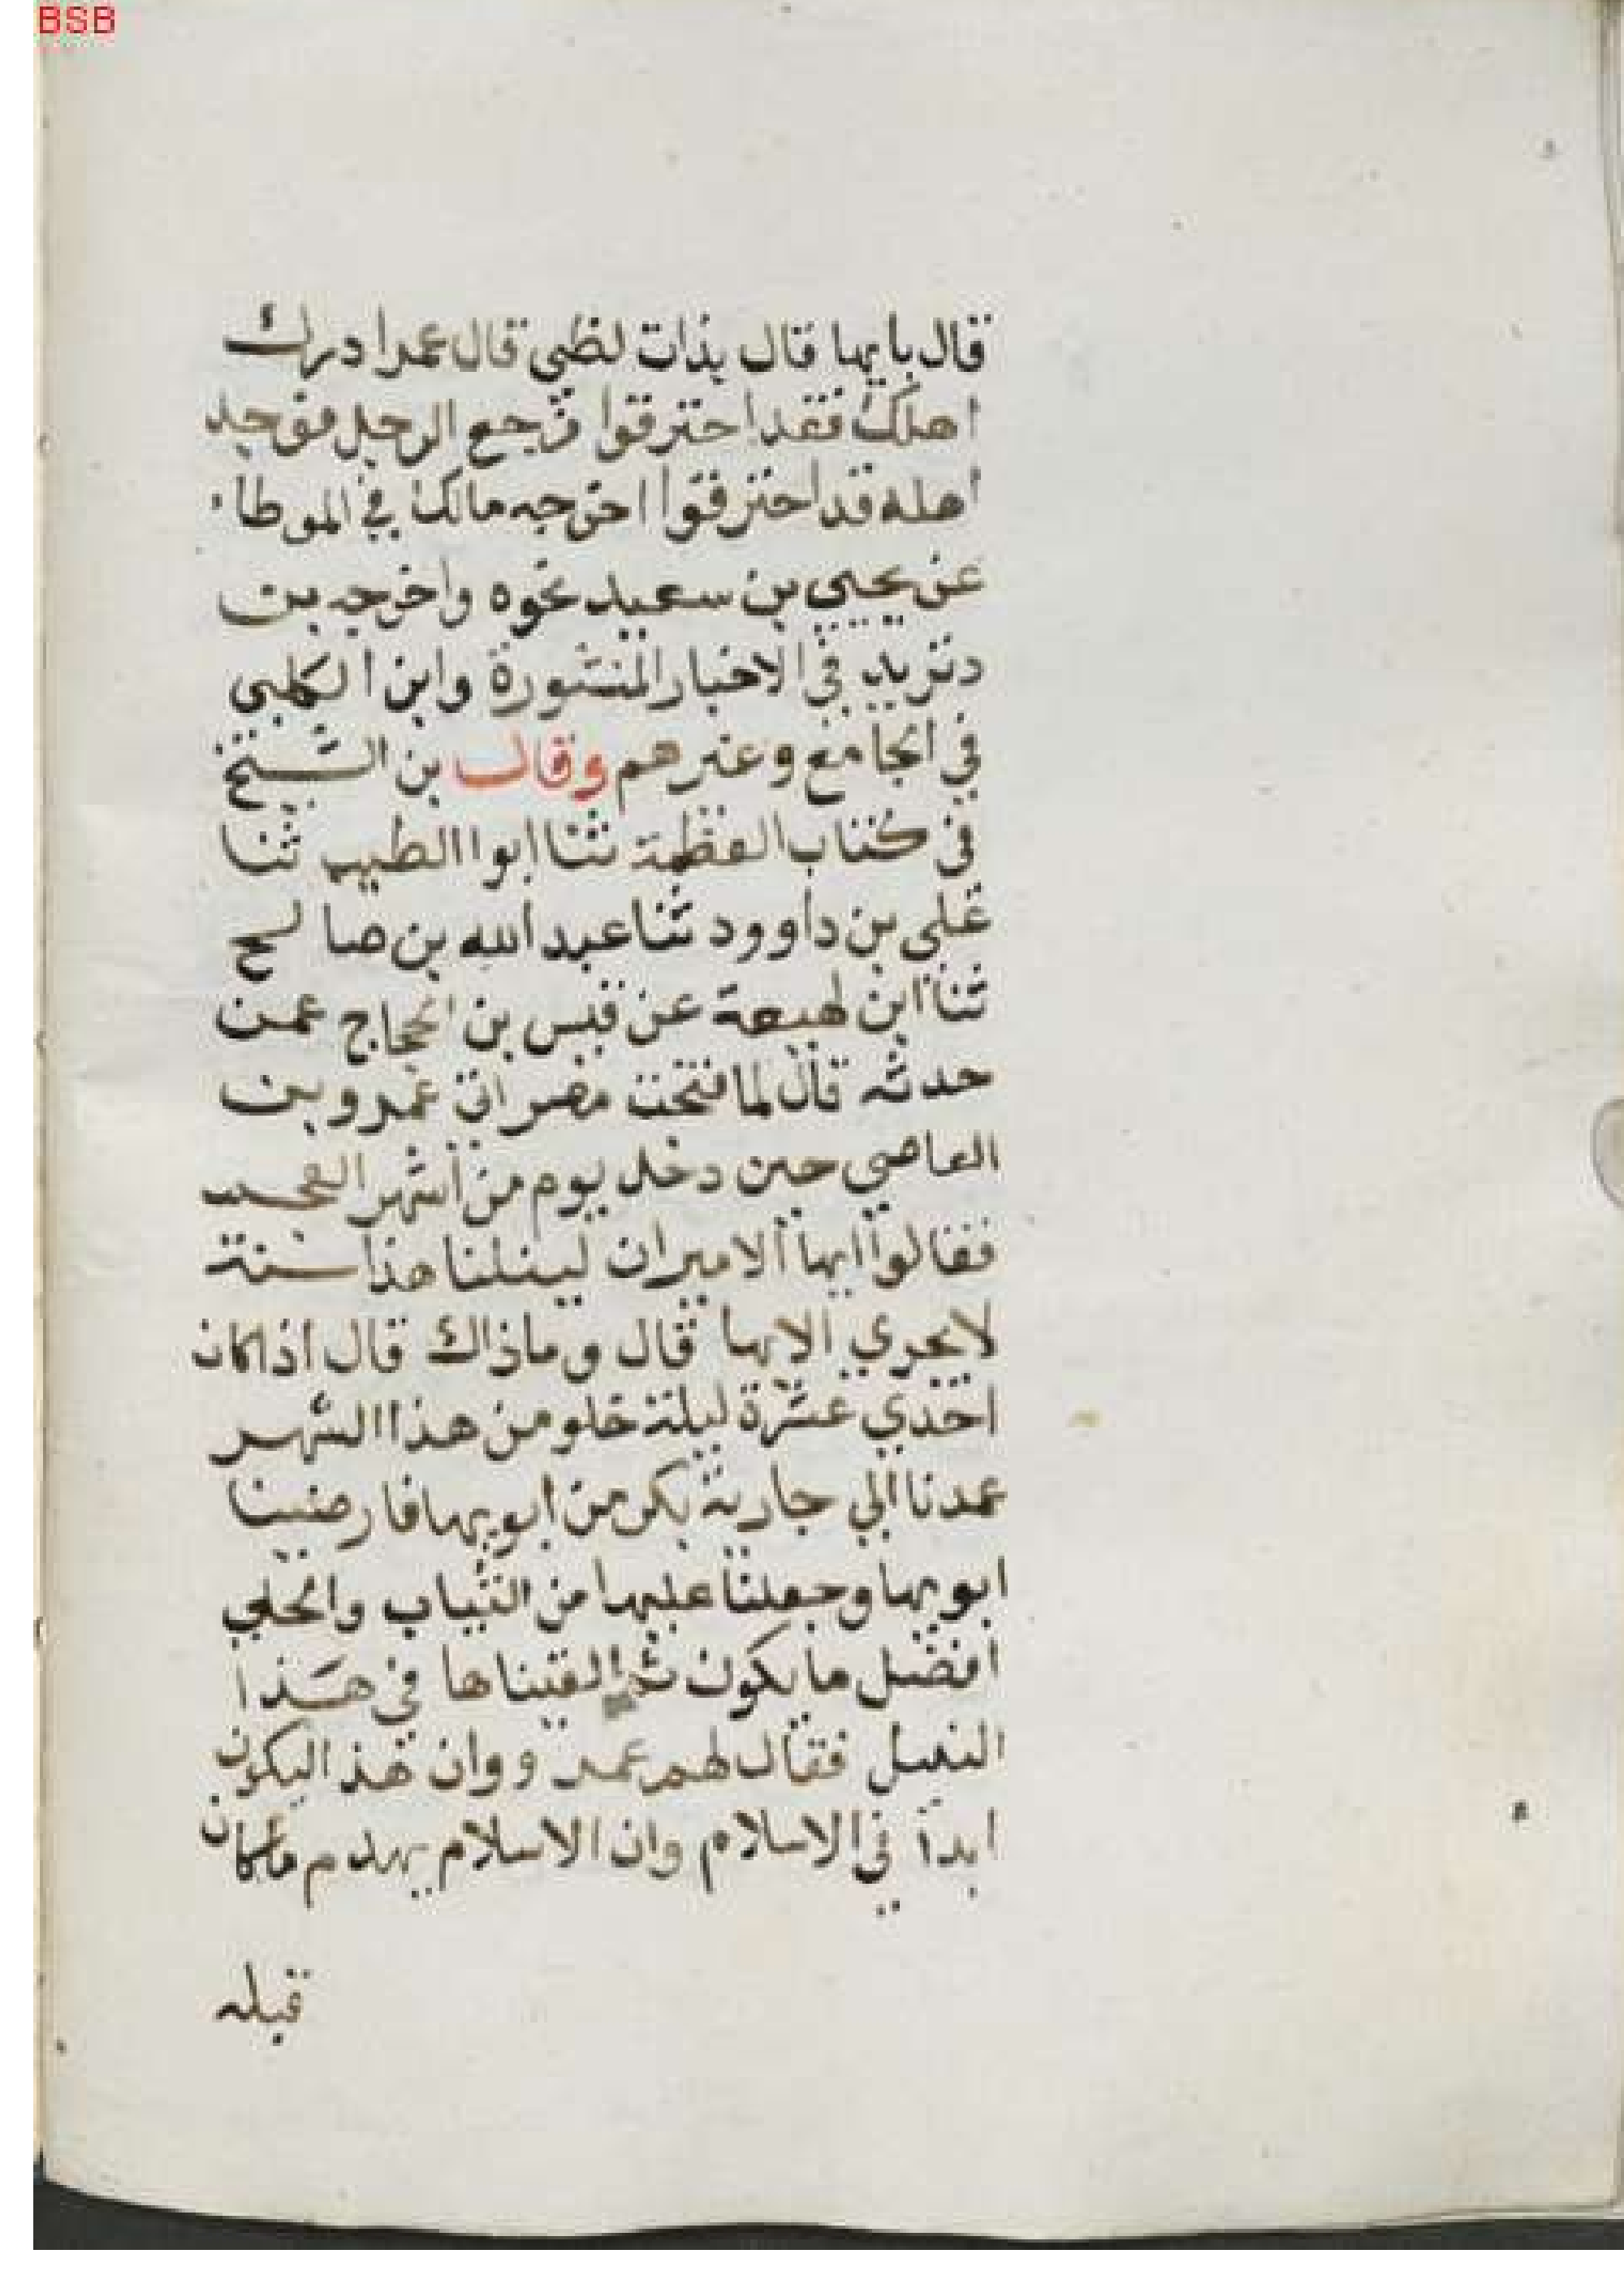 BSB
قال بايها قال بذات لظي قال عمر ادرك
اهلك فقد احترقوا فرجع الرجل فوجد
اهله قد احترقوا اخرجه مالك في الموطاء
عن يحيي بن سعيد نحوه واخرجه بن
دنزيد في الاخبار المنثورة وابن الكلبي
في الجامع وغيرهم وقال بن الشيخ
في كتاب العظمة ثنا ابوا الطيب ثنا
علي بن داوود ثنا عبد الله بن صالح
ثنا ابن لهيعة عن قيس بن الحجاج عمن
حدثه قال لما فتحت مصر اتي عمرو بن
العاصي حين دخل يوم من اشهر العجب
فقالوا ايها الامير ان لنيلنا هذا سنة
لا يجري الا بها قال وما ذاك قال اذا كان
احدي عشرة ليلة خلو من هذا الشهر
عمدنا الي جارية بكر من ابويها فارضينا
ابويها وجعلنا عليها من الثياب والحلي
افضل ما يكون ثم القيناها في هذا
النيل فقال لهم عمر ووان هذ اليكون
ابدا في الاسلام وان الاسلام يهدم ما كان
قبله